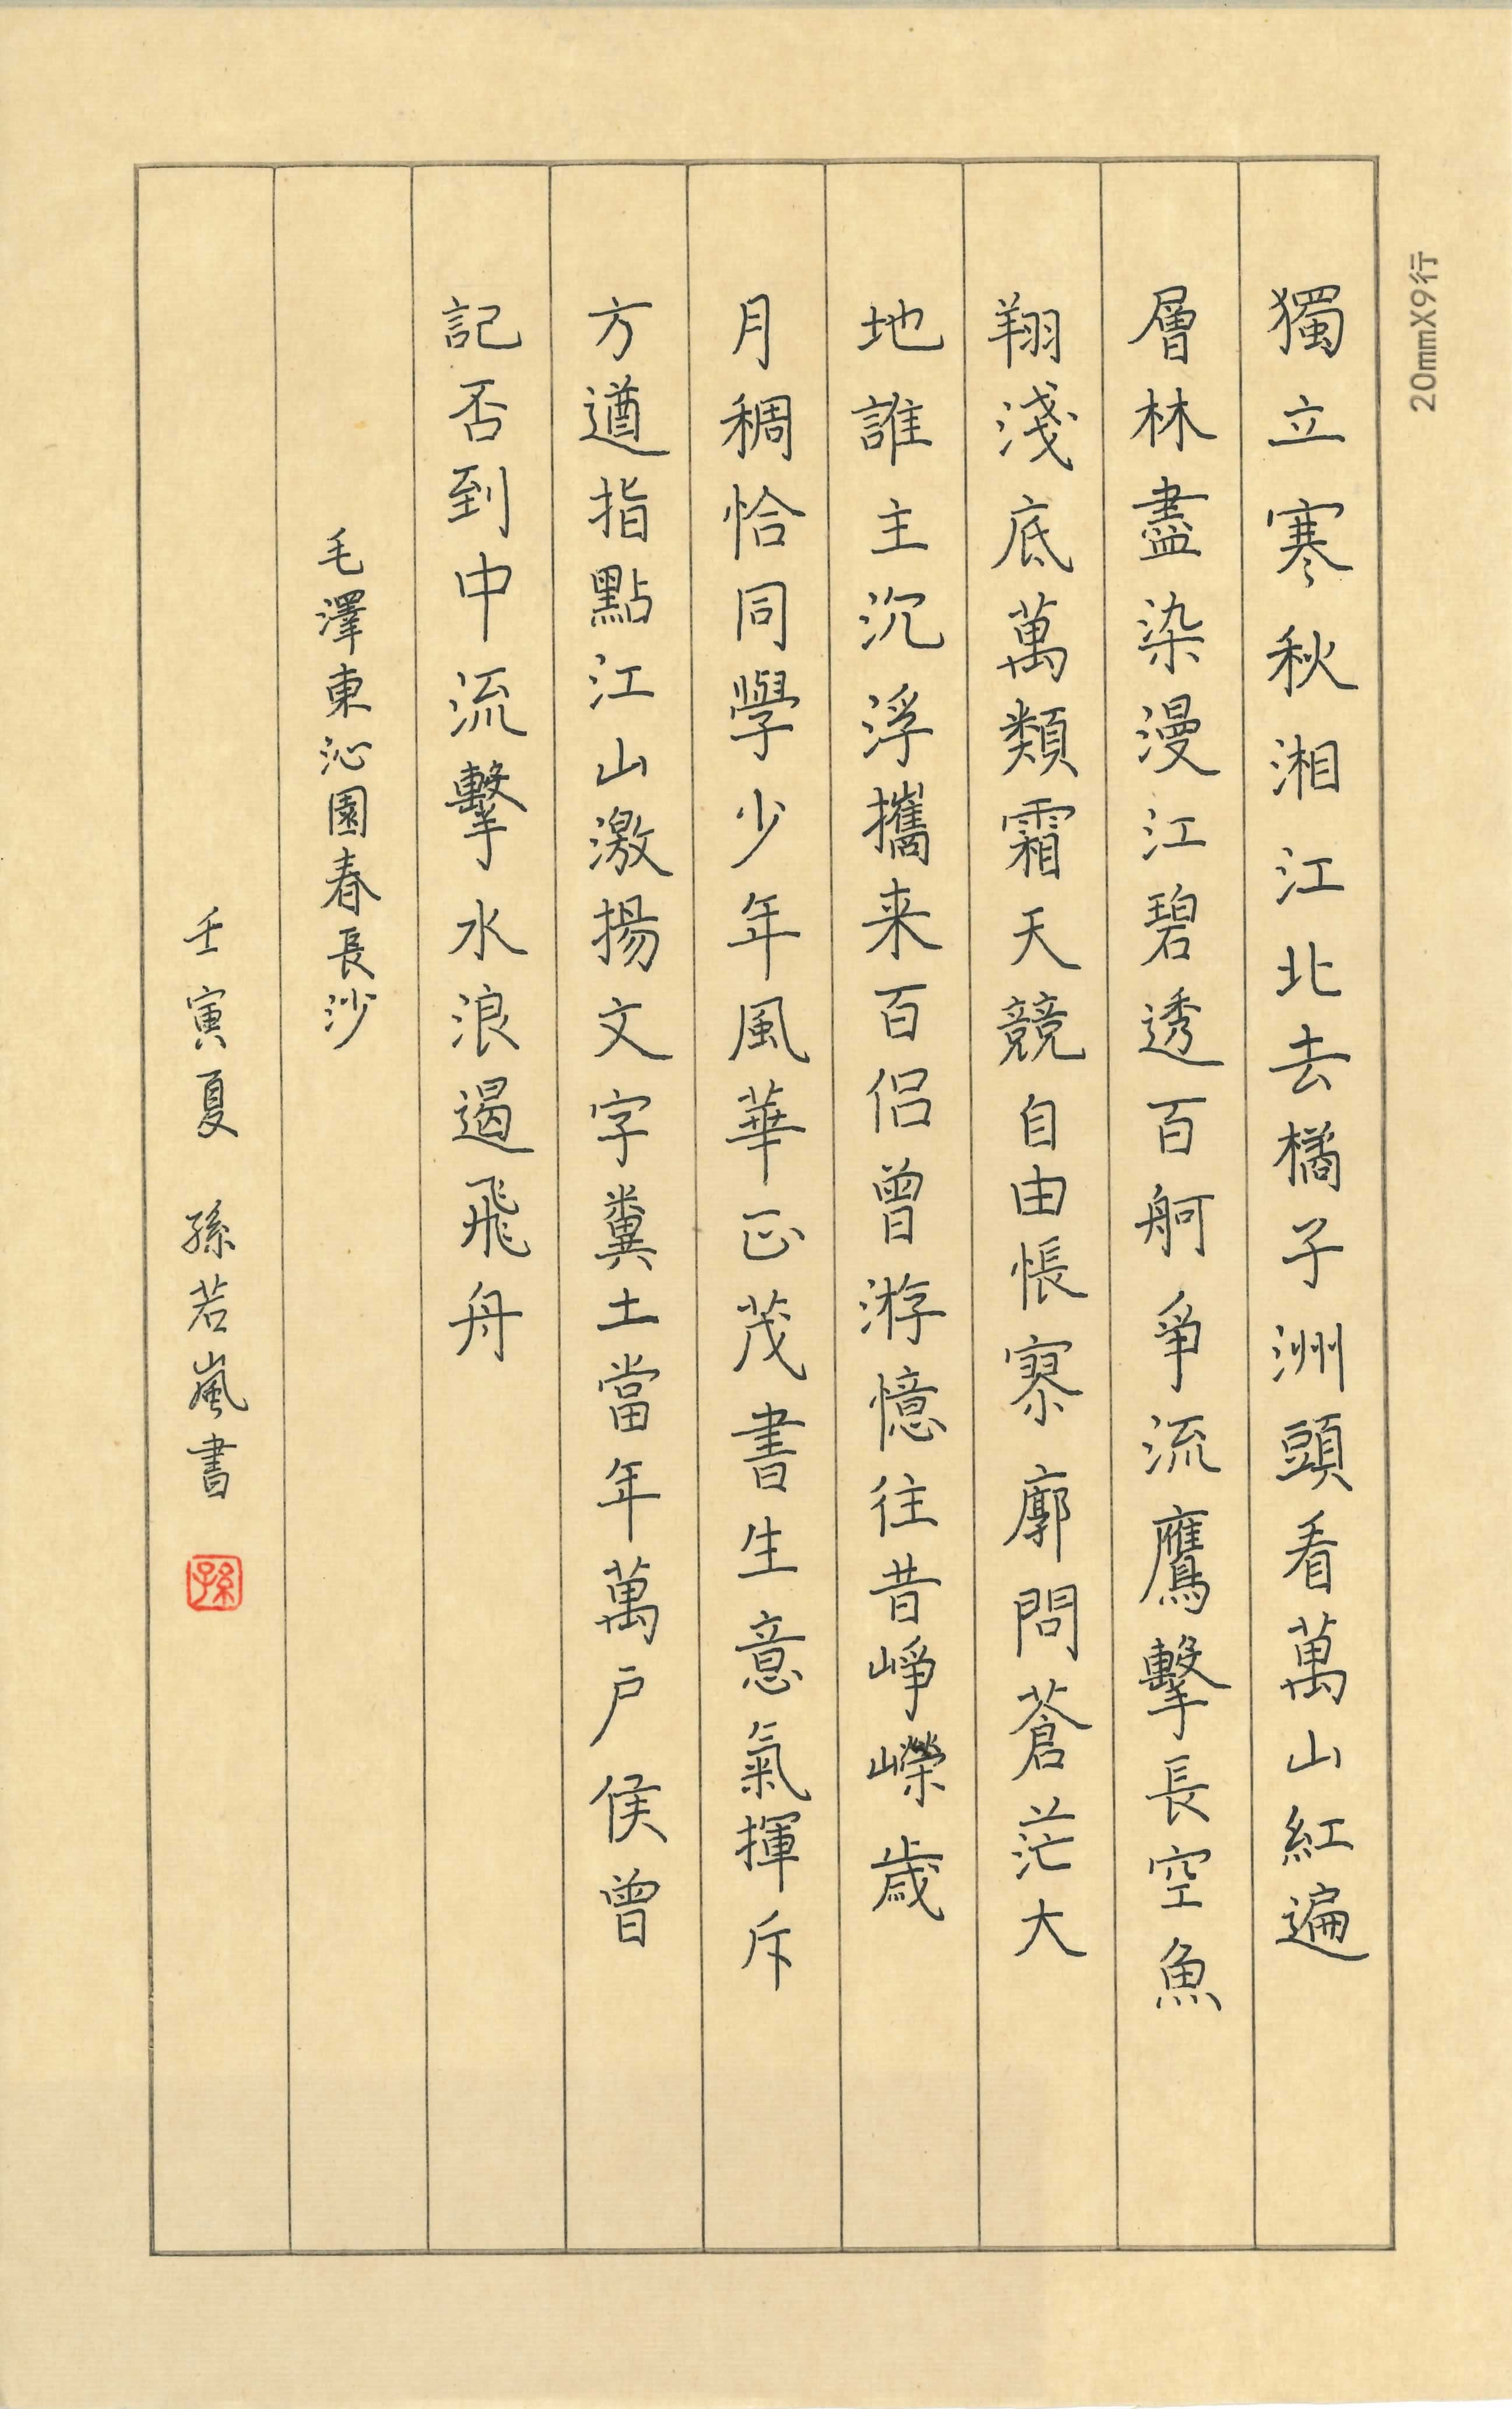 獨立寒秋湘江北去橘子洲頭看萬山紅遍
層林盡染漫江碧透百舸爭流鷹擊長空魚
翔淺底萬類霜天競自由悵寥廓問蒼茫大
地誰主沉浮攜来百侣曾游憶往昔崢嶸歲
月稠恰同學少年風華正茂書生意氣揮斥
方遒指點江山激揚文字糞土當年萬户侯曾
記否到中流擊水浪遏飛舟
毛澤東沁園春長沙
壬寅夏 孫若嵐書
孫
20mmX9行